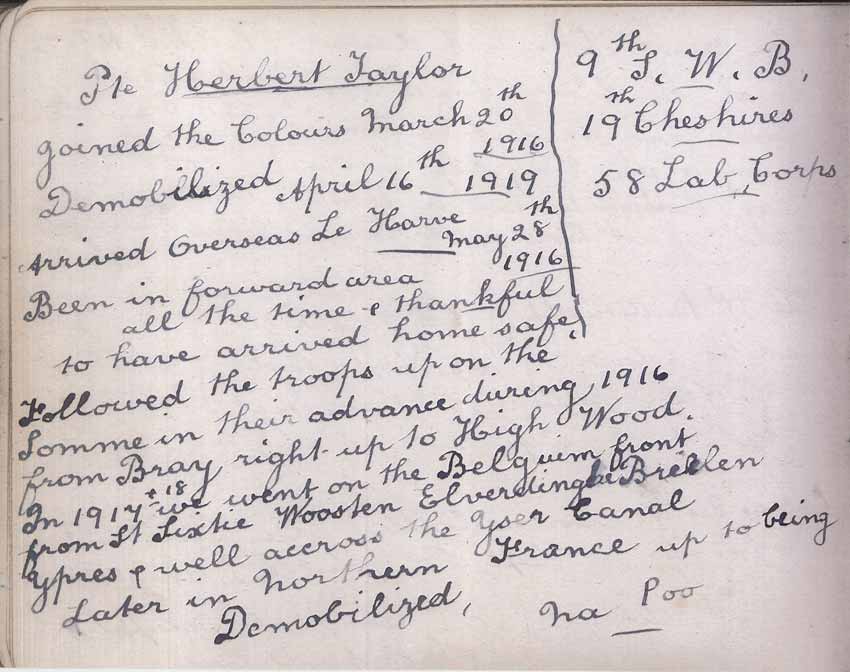 Pte Herbert Taylor
joined the Colours March 20th
1916
Demobilized April 16th 1919
Arrived Overseas Le Harve
May 28th
1916
Been in forward area
all the time & thankful
to have arrived home safe,
Followed the troops up on the
Somme in their advance during 1916
from Bray right up to High Wood.
In 1917 + 18 we went on the Belguim front
from St Sixtie Woosten Elverdinghe Brielen
Ypres & well accross the Yser Canal
Later in Northern France up to being
Demobilized, Na Poo
9th S. W. B.
19th Cheshires
58 Lab, Corps